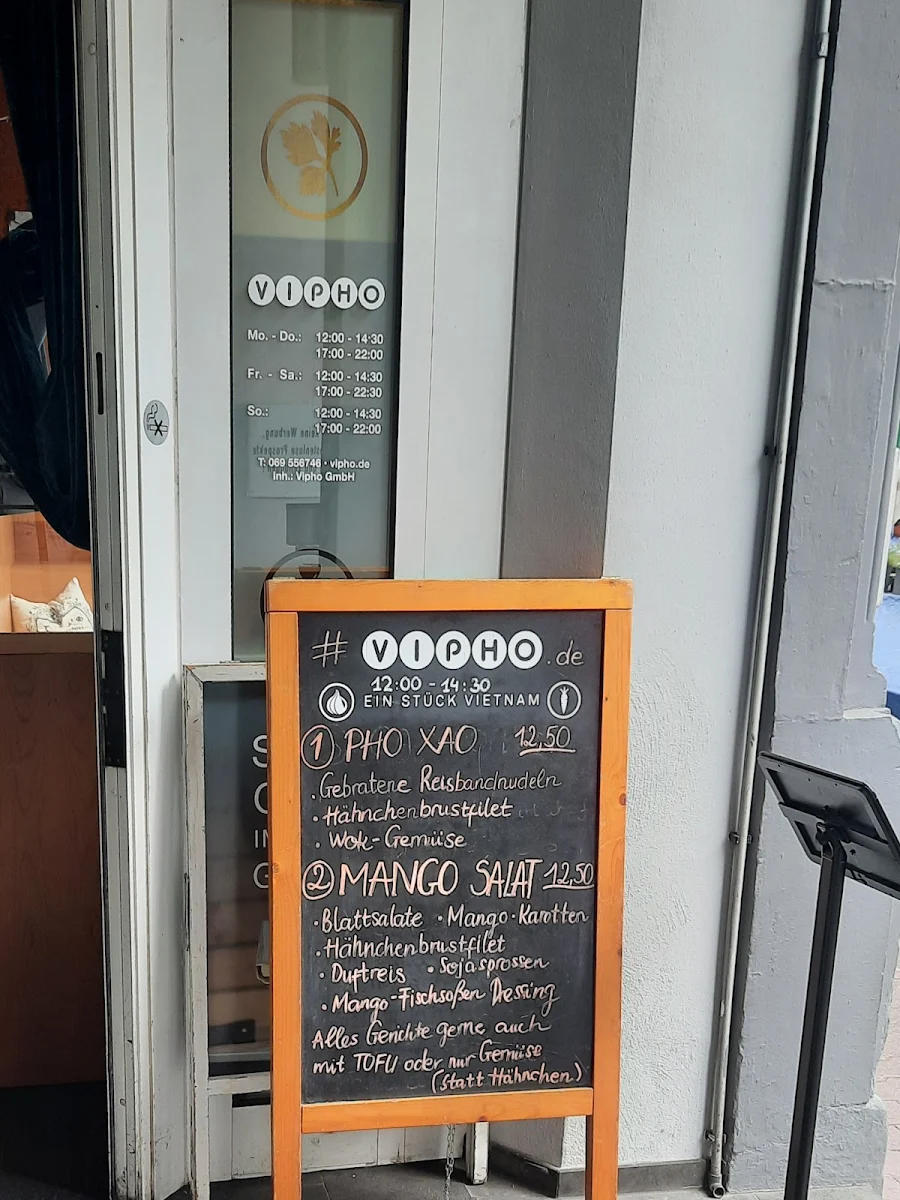 VIPHO
Mo. - Do.: 12:00 - 14:30
17:00 - 22:00
Fr. - Sa.: 12:00 - 14:30
17:00 - 22:30
So.: 12:00 - 14:30
17:00 - 22:00
Keine Werbung,
kostenlose Prospekte
T: 069 556746 · vipho.de
Inh.: Vipho GmbH
# VIPHO.de
12:00 - 14:30
EIN STÜCK VIETNAM
① PHO XAO 12,50
· Gebratene Reisbandnudeln
· Hähnchenbrustfilet
· Wok-Gemüse
② MANGO SALAT 12,50
· Blattsalate · Mango · Karotten
· Hähnchenbrustfilet
· Duftreis · Sojasprossen
· Mango-Fischsoßen Dressing
Alles Gerichte gerne auch
mit TOFU oder nur Gemüse
(statt Hähnchen)